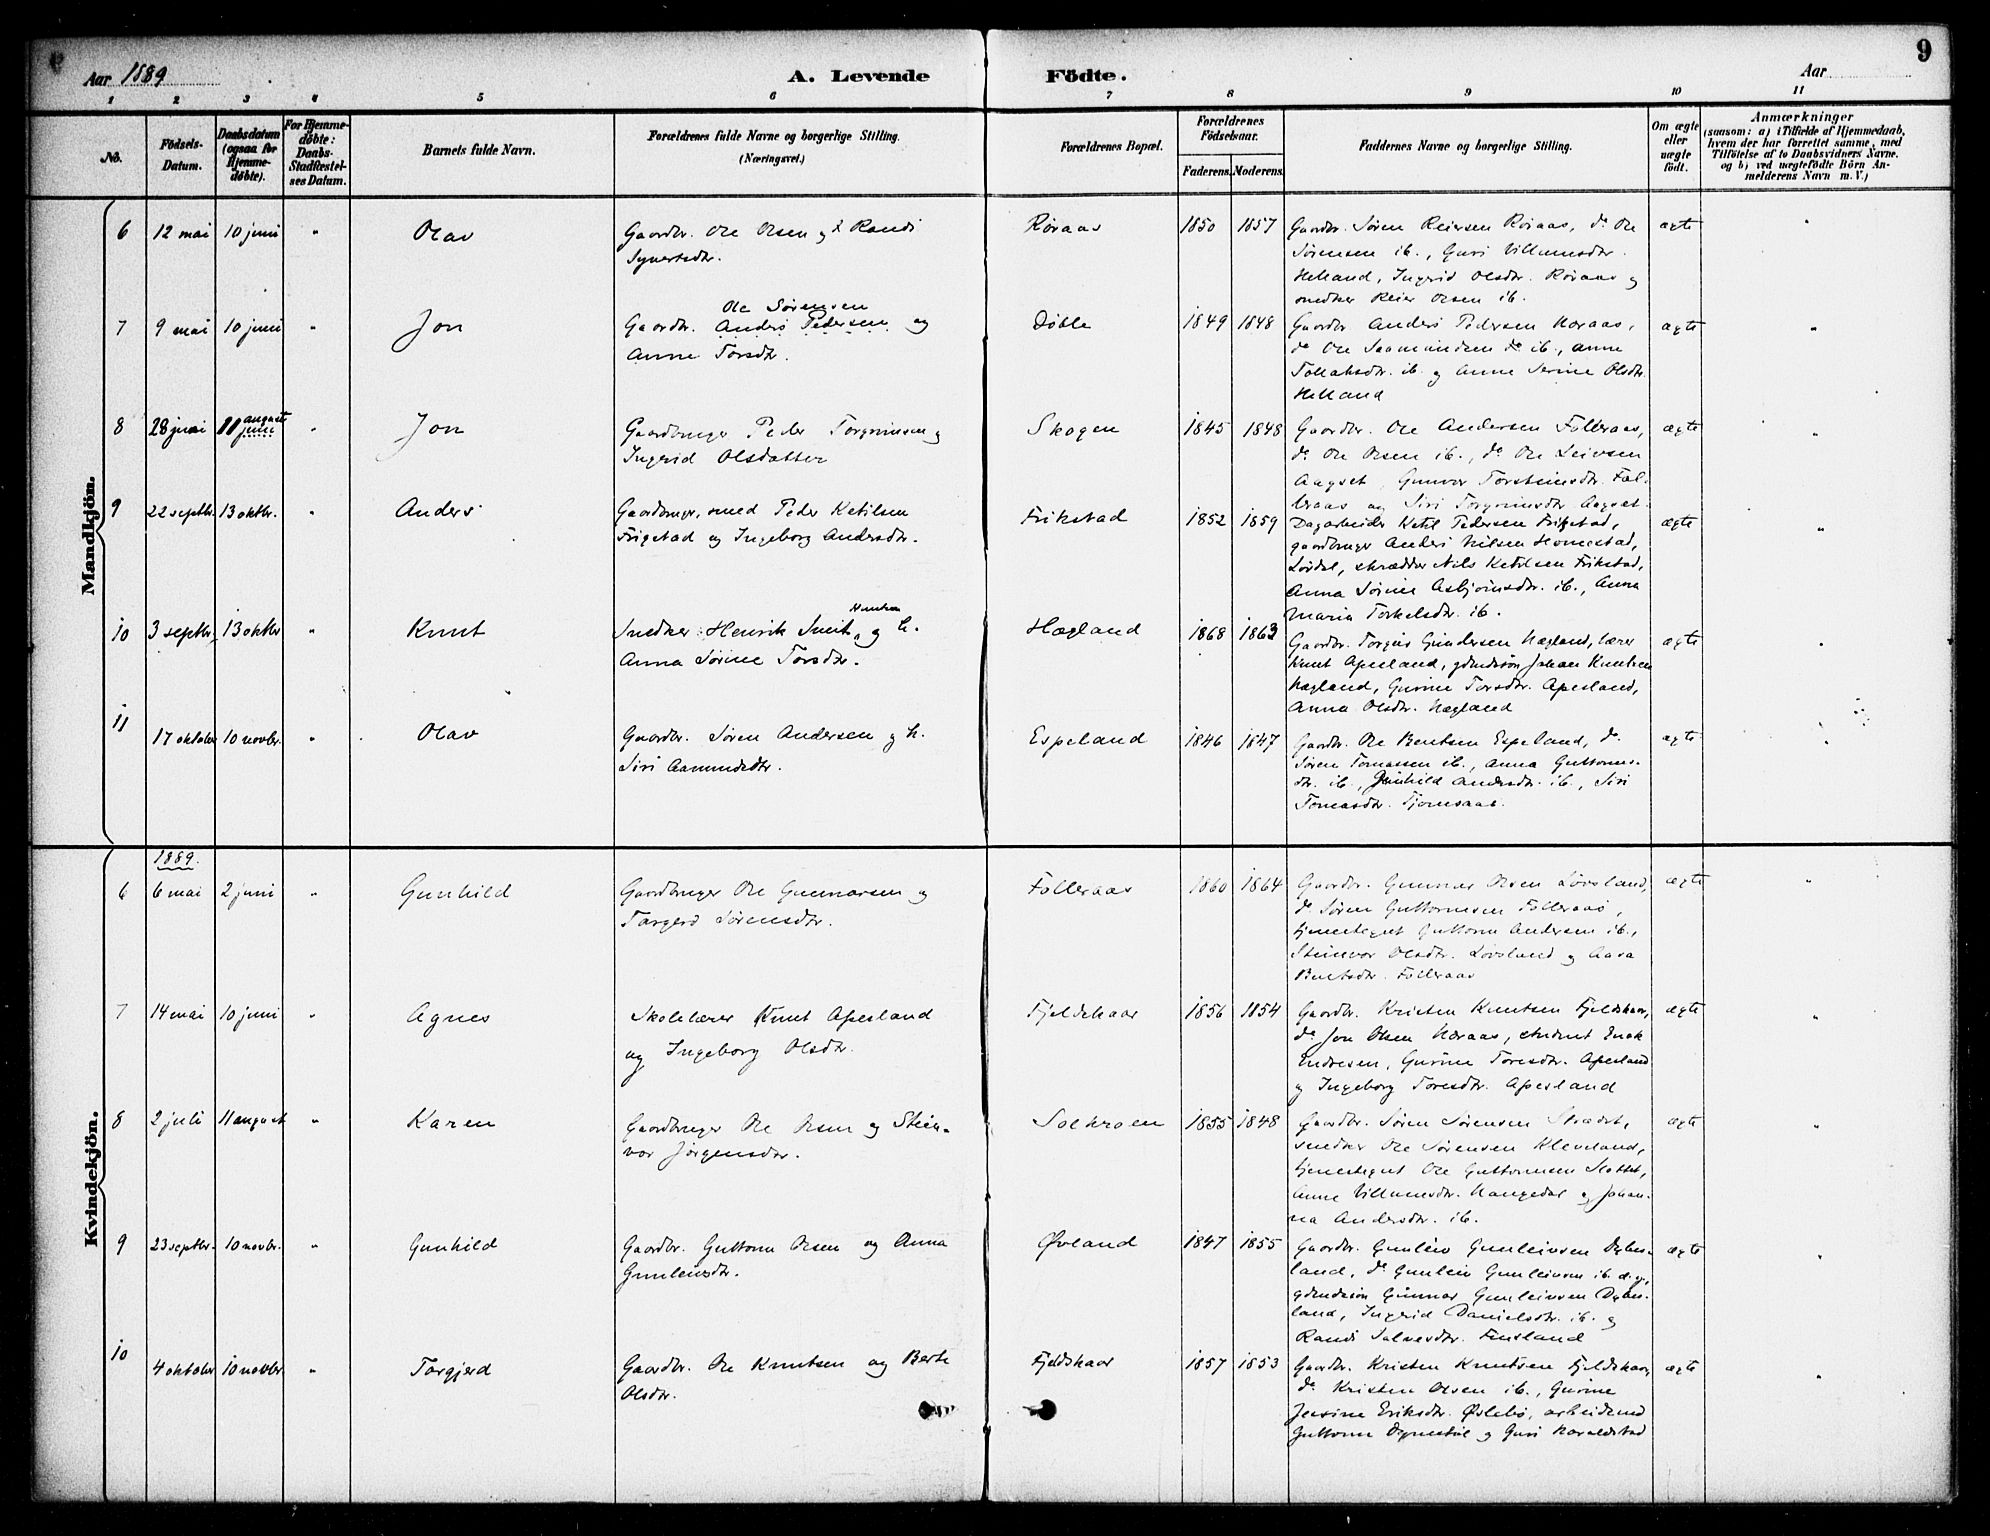 Aar 1889
A. Levende Födte.
Aar
9
1 2 3 4 5 6 7 8 9 10 11
No.
Födsels-Datum.
Daabsdatum (ogsaa for Hjemmedøbte).
For Hjemmedøbte: Daabs-Stadfæstelses Datum.
Barnets fulde Navn.
Forældrenes fulde Navne og borgerlige Stilling. (Næringsvei.)
Forældrenes Bopæl.
Forældrenes Födselsaar.
Faderens. Moderens.
Faddernes Navne og borgerlige Stilling.
Om ægte eller uægte födt.
Anmærkninger
(saasom: a) i Tilfælde af Hjemmedaab, hvem der har forrettet samme, med Tilföielse af to Daabsvidners Navne. og b) ved uægtefödte Börn Anmelderens Navn m. V.)
Mandkjön.
6 12 mai 10 juni " Olav
Gaardbr. Ole Olsen og h Randi
Syvertsdtr.
Røraas 1850 1857
Gaardbr. Søren Reiersen Røraas, do Ole
Sørensen ib., Guri Villumsdtr.
Helland, Ingrid Olsdtr. Røraas og
snedker Reier Olsen ib.
ægte "
7 9 mai 10 juni " Jon
Ole Sørensen
Gaardbr. Anders Pedersen og
Anne Torsdtr.
Døble 1849 1848
Gaardbr Anders Pedersen Haraas,
do Ole Saamundsen do ib., Anne
Tollaksdtr. ib. og Anne Serine Olsdtr.
Helland
ægte "
8 28 juni 11 august juni " Jon
Gaardbruger Peder Torgrimsen og
Ingrid Olsdatter
Skogen 1845 1848
Gaardbr. Ole Andersen Følleraas,
do Ole Olsen ib., do Ole Leivsen
Aagset, Gunvor Torsteinsdtr. Føl-
leraas og Siri Torgrimsdtr Aagset.
ægte "
9 22 septbr. 13 oktbr. " Anders
Gaardbruger, smed Peder Ketilsen
Frigstad og Ingeborg Andersdtr.
Frikstad 1852 1859
Dagarbeider Ketil Pedersen Frikstad,
gaardbruger Anders Nilsen Homestad,
Lørdal, skrædder Nils Ketilsen Frikstad,
Anna Sørine Asbjørnsdtr. ib., Anna
Maria Torkelsdtr. ib.
ægte "
10 3 septbr. 13 oktbr " Knut
Snedker Henrik Smit Knutsen og h.
Anna Sørine Torsdtr.
Hægland 1868 1863
Gaardbr. Torgius Gundersen Hægland, lærer
Knut Apesland, gdmdssøn Johan Knutsen
Hægland, Gurine Torsdtr. Apesland,
Anna Olsdtr. Hægland
ægte "
11 17 oktober 10 novbr. " Olav
Gaardbr. Søren Andersen og h.
Siri Aamundsdtr.
Espeland 1846 1847
Gaardbr. Ole Bentsen Espeland, do
Søren Tomassen ib., Anna Guttorms-
dtr. ib., Gunhild Andersdtr. ib., Siri
Tomasdtr. Tjomsaas.
ægte "
Kvindekjön.
1889.
6 6 mai 2 juni " Gunhild
Gaardbruger Ole Gunnarsen og
Targerd Sørensdtr.
Følleraas 1860 1864
Gaardbr. Gunnar Olsen Løvsland,
do Søren Guttormsen Følleraas,
tjenestegut Guttorm Andersen ib.,
Steinvor Olsdtr. Løvsland og Aasa
Bentsdtr. Følleraas
ægte "
7 14 mai 10 juni " Agnes
Skolelærer Knut Apesland
og Ingeborg Olsdtr.
Fjeldskaar 1856 1854
Gaardbr. Kristen Knutsen Fjeldskaar,
do Jon Olsen Haraas, student Enok
Endresen, Gurine Toresdtr. Apesland
og Ingeborg Toresdtr. Apesland
ægte "
8 2 juli 11 august " Karen
Gaardbruger Ole Olsen og Stein-
vor Jørgensdtr.
Solkroen 1855 1848
Gaardbr. Søren Sørensen Strædet,
snedker Ole Sørensen Kleveland,
tjenestegut Ole Guttormsen Slottet,
Anne Villumsdtr. Haugedal og Johan-
na Andersdtr. ib.
ægte "
9 23 septbr. 10 novbr. " Gunhild
Gaardbr. Guttorm Olsen og Anna
Gunleivsdtr.
Øvland 1847 1855
Gaardbr. Gunleiv Gunleivsen Dybes-
land, do Gunleiv Gunleivsen ib. d. y.,
gdmdssøn Gunnar Gunleivsen Dybes-
land, Ingrid Danielsdtr. ib. og
Randi Salvesdtr. Finsland
ægte "
10 4 oktober 10 novbr. " Torgjerd
Gaardbr. Ole Knutsen og Berte
Olsdtr.
Fjeldskaar 1857 1853
Gaardbr. Kristen Knutsen Fjeldskaar,
do Kristen Olsen ib., Gurine
Jensine Eriksdtr. Øslebø, arbeidsmd
Guttorm Dynestøl og Guri Haraldstad
ægte "